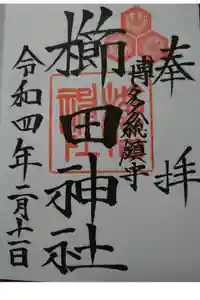 奉拝
博多総鎮守
櫛田神社
令和四年二月十一日